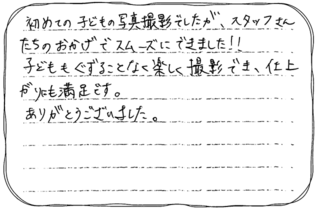 初めての子どもの写真撮影でしたが、スタッフさん
たちのおかげでスムーズにできました!!
子どももぐずることなく楽しく撮影でき、仕上
がりにも満足です。
ありがとうございました。